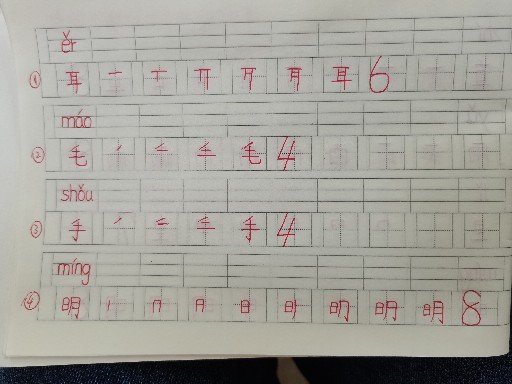 ěr
① 耳 一 丅 丌 耳 6
máo
② 毛 ノ 二 三 毛 4
shǒu
③ 手 ノ 二 三 手 4
míng
④ 明 丨 冂 日 日 明 明 8